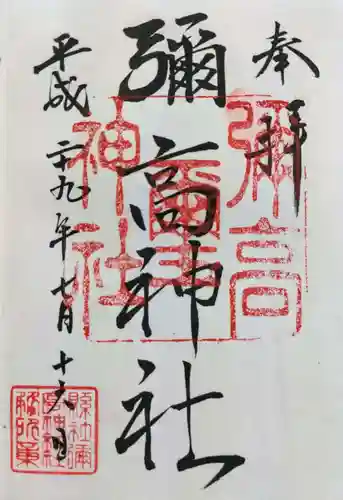 奉拝
彌高神社
平成二十九年七月十六日
彌高
神社